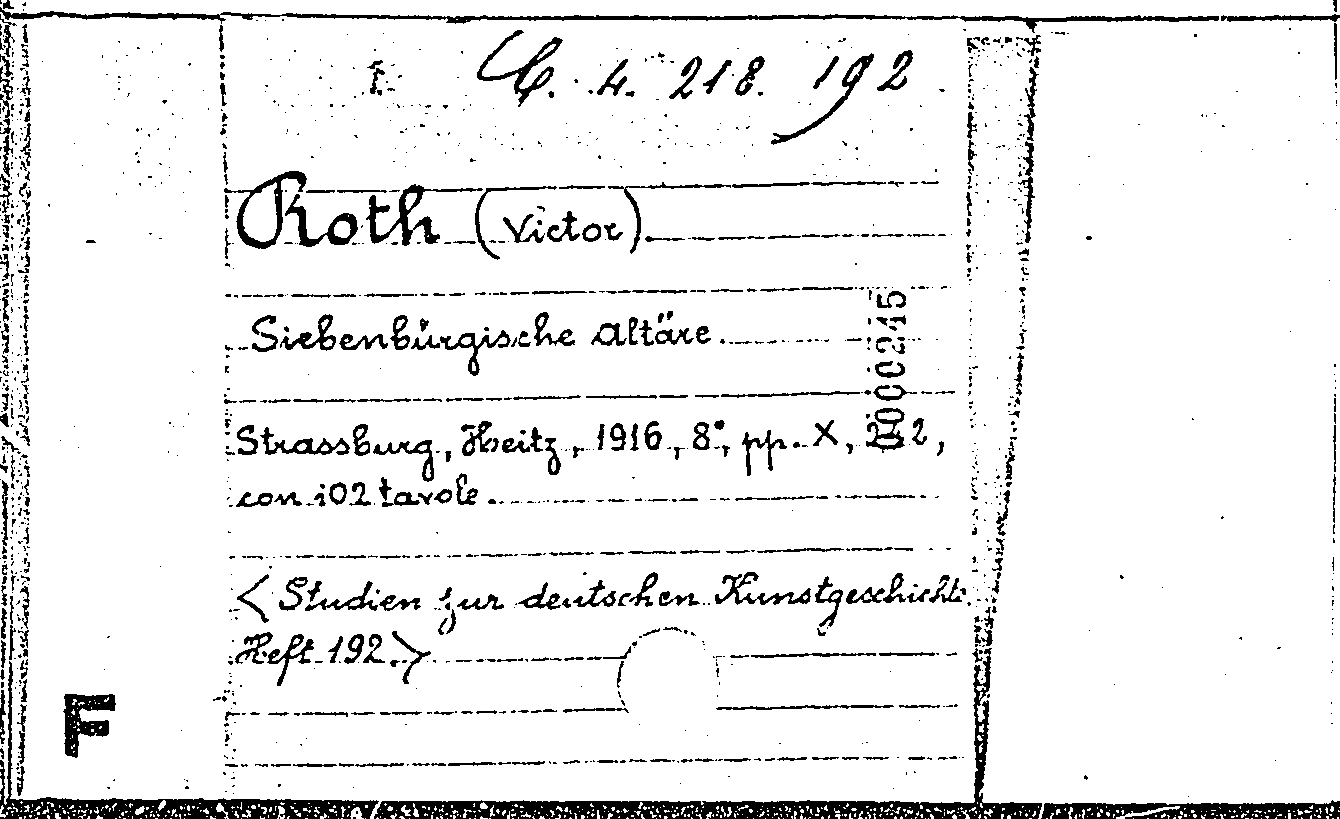 C. 4. 218. 192
Roth (Victor).
Siebenbürgische Altäre.
00000245
Strassburg, Heitz, 1916, 8°, pp. X,
con 102 tavole.
<Studien zur deutschen Kunstgeschichte.
Heft 192.>
F